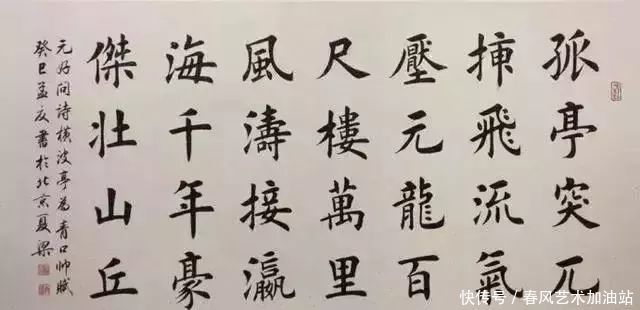 孤亭突兀
挿飛流氣
壓元龍百
尺樓萬里
風濤接瀛
海千年豪
傑壮山丘
元好问诗横波亭为青口帅赋
癸巳孟夏書於北京夏梁
快传号／春风艺术加油站